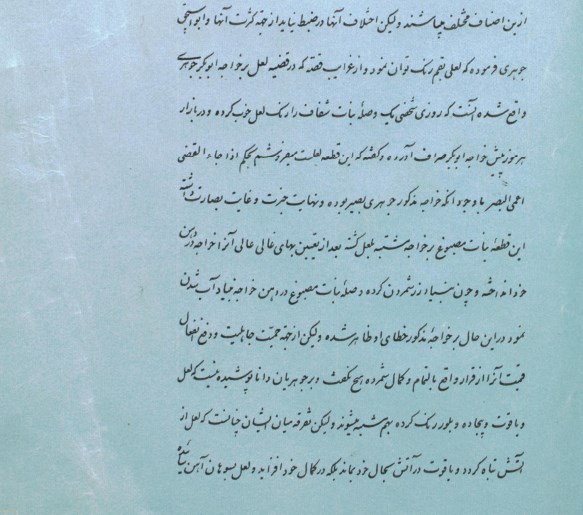 ازین اصناف مختلف میباشند ولیکن اختلاف آنها در ضبط نیاید از جهة کثرت آنها و ابو
جوهری فرموده که لعلی بقم رنک توان نمود و از غرایب قصه که در قضیه لعل بر خواجه ابوبکر جوهری
واقع شده آنست که روزی شخصی یک وصله نبات شفاف را رنک لعل خوب کرده و در بازار
هرموز پیش خواجه ابوبکر صراف آورده و گفته که این قطعه لعلست میفروشم بحکم اذا جاء القضی
اعمی البصر با وجود آنکه خواجه مذکور جوهری بصیر بوده و نهایت خبرت و غایت بصارت داشته
این قطعهٔ نبات مصبوغ بر خواجه مشتبه بلعل گشته بعد از تعیین بهای غالی عالی آنرا خواجه در دهن
خود انداخته و چون بنیاد زر شمردن کرده وصلهٔ نبات مصبوغ در دهن خواجه بنیاد آب شدن
نمود در این حال بر خواجهٔ مذکور خطای او ظاهر شده ولیکن از جهة حمیت جاهلیت و دفع انفعال
قیمت آنرا از قرار واقع بالتمام و کمال شمرده هیچ نگفت و بر جوهریان دانا پوشیده نیست که لعل
و یاقوت و بیجاده و بلور رنک کرده بهم شبیه میشوند ولیکن تفرقه میان ایشان چنانست که لعل از
آتش تباه گردد و یاقوت در آتش بحال خود بماند بلکه در کمال خود افزاید و لعل بسوهان آهن